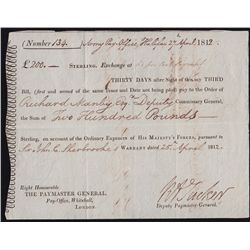 (Number 134. Army Pay-Office, Halifax 27th April 1812.
£200.— STERLING. Exchange at
THIRTY DAYS after Sight of this my THIRD
Bill, (first and second of the same Tenor and Date not being paid) pay to the Order of
Richard Manby Esqr. Deputy Commissary General,
the Sum of Two Hundred Pounds—
Sterling, on account of the Ordinary Expences of HIS MAJESTY'S FORCES, pursuant to
Sir John C. Sherbrooke's WARRANT dated 25th April 1812.
Right Honourable
THE PAYMASTER GENERAL,
Pay-Office, Whitehall,
LONDON.
Deputy Paymaster General.